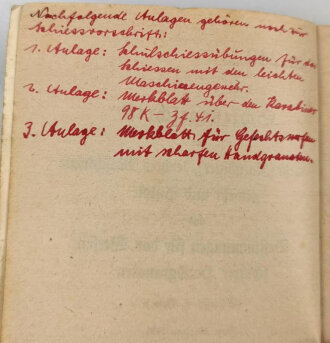 Nachfolgende Anlagen gehören noch zur
Schiessvorschrift:
1. Anlage: Schulschiessübungen für das
Schiessen mit dem leichten
Maschinengewehr.
2. Anlage: Merkblatt über den Karabiner
98K – Zf. 41.
3. Anlage: Merkblatt für Gefechtswerfen
mit scharfen Handgranaten.